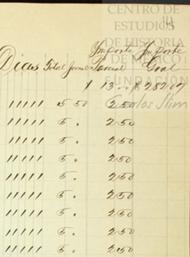 CENTRO DE
ESTUDIOS
DE HISTORIA
DE MEXICO
FUNDACIÓN
Carlos Slim
Importe Importe
Dias Total Parcial Total
$ 13 $ 282 09
11111 5 50 2 50
11111 5 . 2 50
11111 5 . 2 50
11111 5 . 2 50
11111 5 . 2 50
11111 5 . 2 50
11111 5 . 2 50
11111 5 . 2 50
11111 5 . 2 50